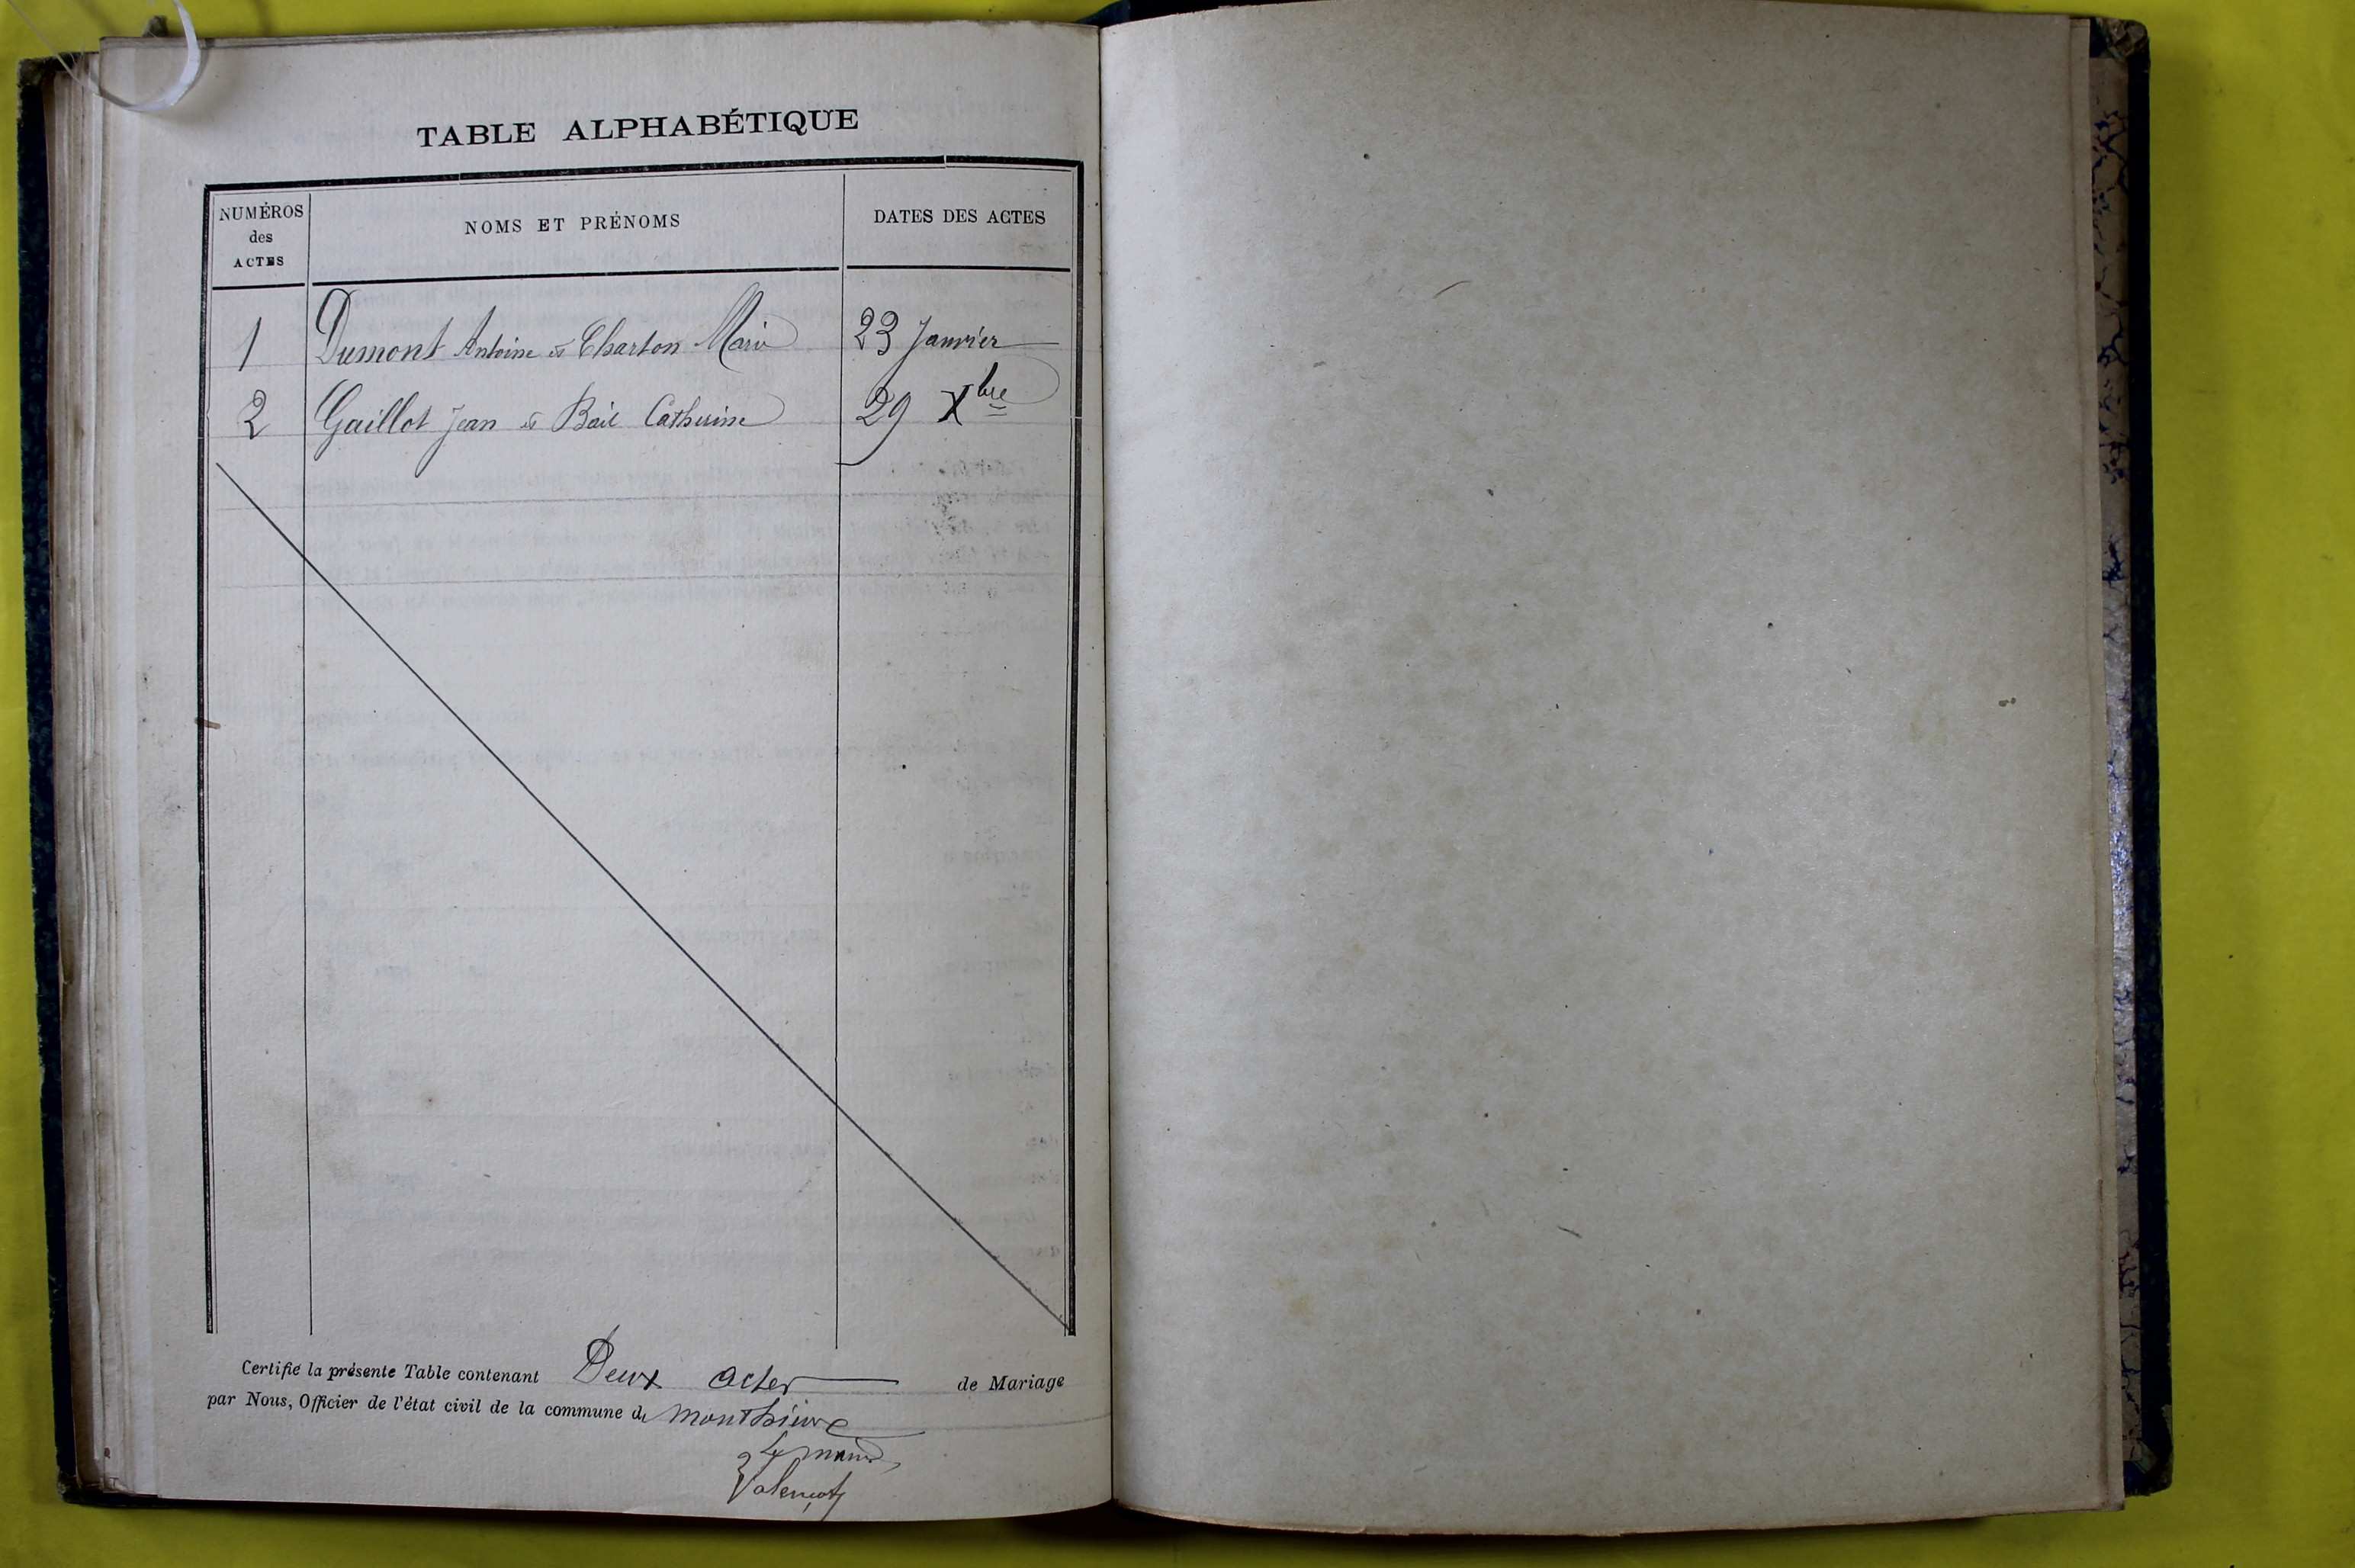 TABLE ALPHABÉTIQUE
NUMÉROS
des
ACTES
NOMS ET PRÉNOMS
DATES DES ACTES
1 Dumont Antoine et Charton Marie 23 Janvier
2 Gaillot Jean et Bail Catherine 29 Xbre
Certifié la présente Table contenant Deux actes de Mariage
par Nous, Officier de l'état civil de la commune de Monthieux
Le maire,